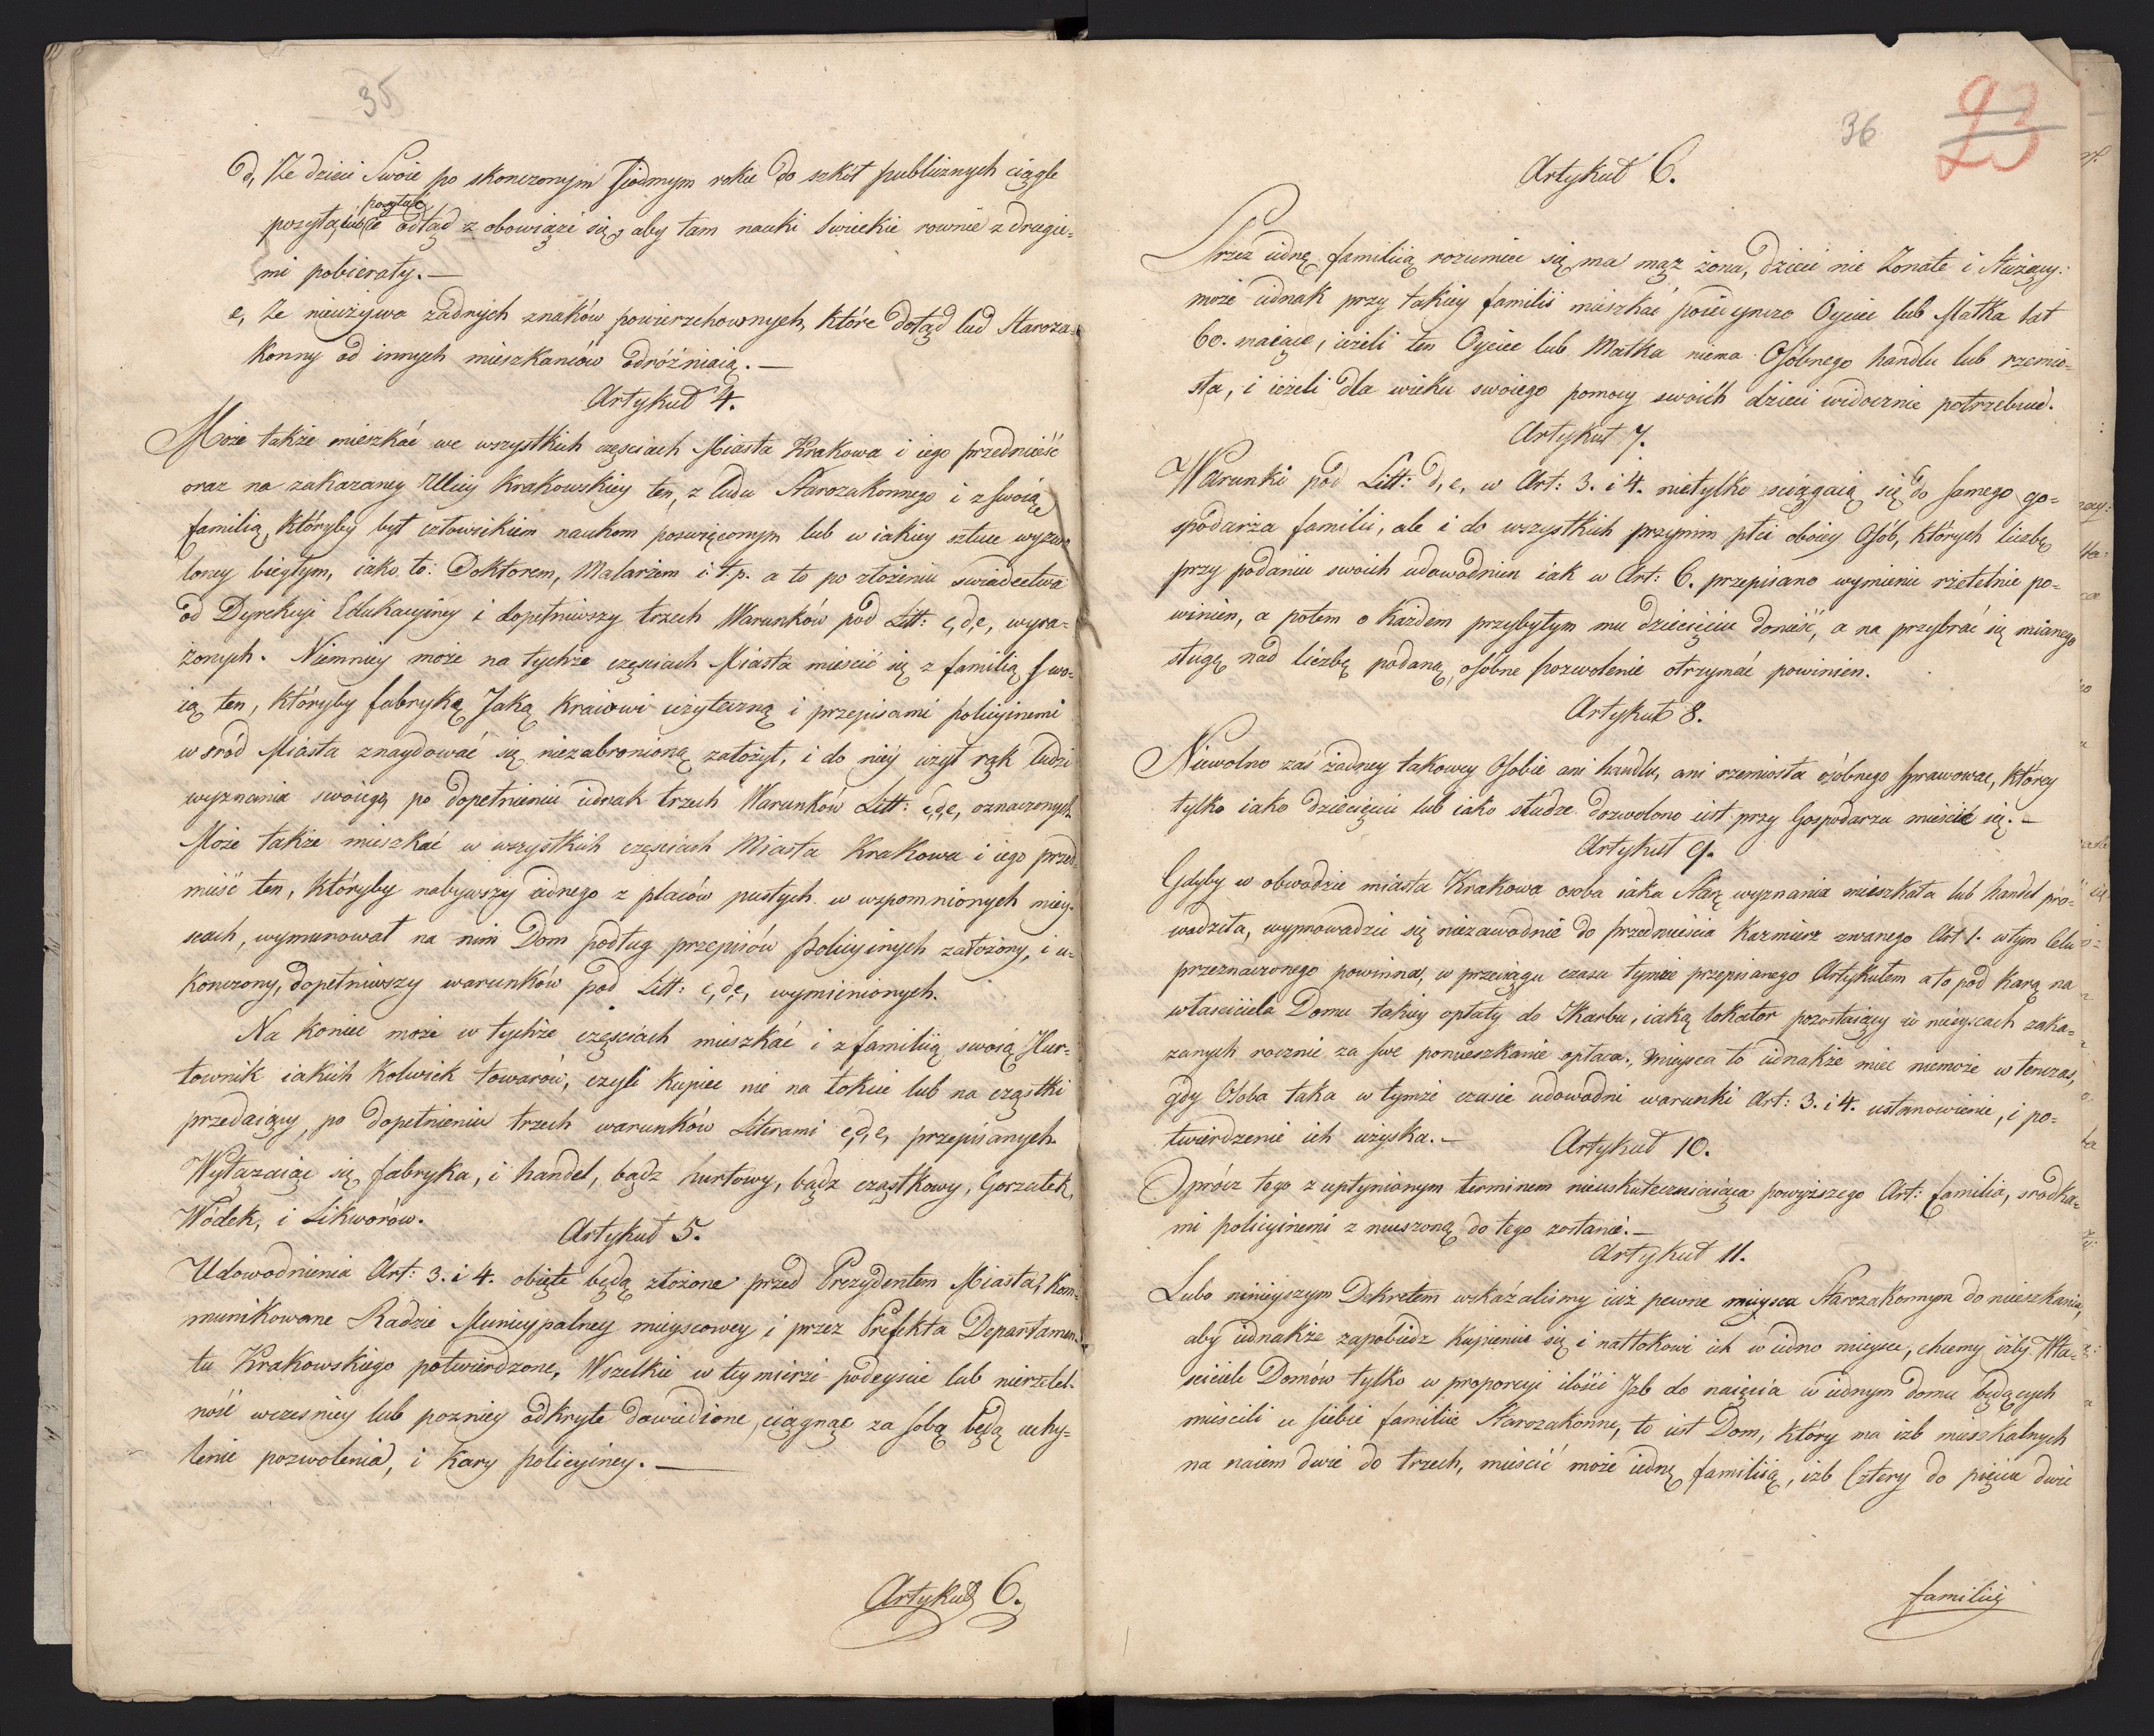 35
d, Że dzieci Swoie po skonczonym Siodmym roku do szkół publicznych ciągle
posyłać
posyła, lub że odtąd z obowiąże się, aby tam nauki Swieckie rownie z drugie-
mi pobierały.—
e, Że nieużywa żadnych znaków powierzchownych, które dotąd lud Staroza-
konny od innych mieszkanców odróżniaią.—
Artykuł 4.
Może także mieszkać we wszystkich częsciach Miasta Krakowa i iego przedmieść
oraz na zakazaney Ulicy Krakowskiey ten, z ludu Starozakonnego i z swoią
familią, któryby był człowiekiem naukom poswięconym lub w iakiey sztuce wyzwo
loney biegłym, iako to: Doktorem, Malarzem i t. p. a to po złożeniu swiadectwa
od Dyrekcyi Edukacyiney i dopełniwszy trzech Warunków pod Litt: c, d, e, wyra-
żonych. Niemniey może na tychże częsciach Miasta miescić się z familią swo-
ią ten, któryby fabrykę Jaką Kraiowi użyteczną i przepisami policyinemi
w sród Miasta znaydować się niezabronioną założył, i do niey użył rąk ludzi
wyznania swoiego, po dopełnieniu iednak trzech Warunków Litt: c, d, e, oznaczonych
Może także mieszkać w wszystkich częsciach Miasta Krakowa i iego przed-
mieść ten, któryby nabywszy iednego z placów pustych w wspomnionych miey-
scach, wymurował na nim Dom podług przepisów policyinych założony, i u-
konczony, dopełniwszy warunków pod Litt: c, d, e, wymienionych.
Na koniec może w tychże częsciach mieszkać i z familią swoią Hur-
townik iakich kolwiek towarów, czyli kupiec nie na łokcie lub na cząstki
przedaiący, po dopełnieniu trzech warunków Literami c, d, e, przepisanych.
Wyłączaiąc się fabryka, i handel, bądz hurtowy, bądz cząstkowy, Gorzałek,
Wódek, i Likworow.
Artykuł 5.
Udowodnienia Art: 3. i 4. obięte będą złożone przed Prezydentem Miasta, kom-
munikowane Radzie Municypalney mieyscowey i przez Prefekta Departamen-
tu Krakowskiego potwierdzone, Wszelkie w tey mierze podeyscie lub nierzetel-
ność wczesniey lub pozniey odkryte dowiedzione, ciągnąc za sobą będą uchy-
lenie pozwolenia, i kary policyiney.—
Artykuł 6.
36
23
Artykuł 6.
Przez iednę familiią rozumiec się ma mąż żona, dzieci nie Zonate i Służący:
może iednak przy takiey familii mieszkać poiedynczo Oyciec lub Matka lat
60. maiące, ieżeli ten Oyciec lub Matka niema Osóbnego handlu lub rzemio-
sła, i ieżeli dla wieku swoiego pomocy swoich dzieci widocznie potrzebuie.
Artykuł 7.
Warunki pod Litt: d, e, w Art: 3. i 4. nietylko sciągaią się do samego go-
spodarza familii, ale i do wszystkich przynim płci oboiey Osób, których liczbę
przy podaniu swoich udowodnien iak w Art: 6. przepisano wymienic rzetelnie po-
winien, a potem o każdem przybyłym mu dziecięciu donieść, a na przybrać się mianego
sługę nad liczbę podaną, osóbne pozwolenie otrzymać powinien.
Artykuł 8.
Niewolno zaś żadney takowey Osobie ani handlu, ani rzemiosła osóbnego sprawowac, którey
tylko iako dziecięciu lub iako słudze dozwolono iest przy Gospodarzu mieścić się.—
Artykuł 9.
Gdyby w obwodzie miasta Krakowa osoba iaka Starz wyznania mieszkała lub handel pro-
wadziła, wyprowadzic się niezawodnie do przedmieścia Kazmierz zwanego Art 1. w tym Celu
przeznaczonego powinna, w przeciągu czasu tymże przepisanego Artykułem a to pod karą na
własciciela Domu takiey opłaty do Skarbu, iaką lokator pozostaiący w mieyscach zaka-
zanych rocznie za swe pomieszkanie opłaca, mieysca to iednakże miec niemoże w tenczas,
gdy Osoba taka w tymże czasie udowodni warunki Art: 3. i 4. ustanowienie, i po-
twierdzenie ich uzyska.—
Artykuł 10.
Oprócz tego z upłynionym terminem nieuskuteczniaiąca powyższego Art: familia, srodka-
mi policyinemi z mieszoną do tego zostanie.—
Artykuł 11.
Lubo ninieyszym Dekretem wskazalismy iuż pewne mieysca Starozakonnym do mieszkania,
aby iednakże zapobiedz kupieniu się i natłokowi ich w iedno mieysce, chcemy iżby Wła-
sciciele Domów tylko w proporcyi ilości Jzb do naięcia w iednym domu będących
miescili u siebie familiie Starozakonne, to iest Dom, który ma izb mieszkalnych
na naiem dwie do trzech, mieścić może iednę familiią, izb Cztery do pięciu dwie
familiie